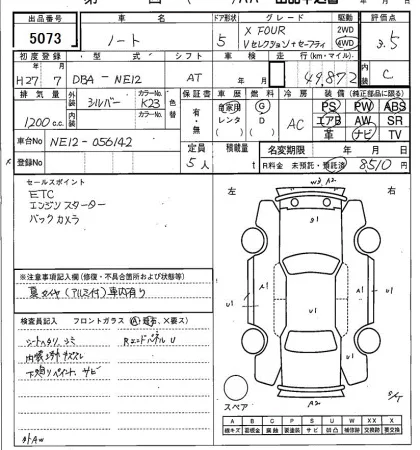 出品番号 車名 ドア形状 グレード 駆動 評価点
5073 ノート 5 X FOUR 2WD 3.5
Vセレクション+セーフティ 4WD
初度登録 型式 シフト 車検 走行(km・マイル) 内装
H27年 7月 DBA-NE12 AT 年 月 49,872 C
排気量 外装 カラーNo. 色替 保証書 車歴 燃料 冷房 装備(純正部品に限る)
1,200c.c. シルバー K23 有・無 自家用 G AC PS PW ABS
内装 カラーNo. レンタ D エアB AW SR
車台No NE12-056142 革 ナビ TV
登録No 定員 積載量 名変期限 年 月 日
5人 t R料金 未預託・預託済 8510円
セールスポイント
ETC
エンジンスターター
バックカメラ
左 右
W3 A2
※注意事項記入欄(修復・不具合箇所および状態等)
夏タイヤ(アルミ付)車内有り
検査員記入 フロントガラス
シートスリ、シミ Rエンドパネル U
下廻りペイント、サビ
外AW
スペア
A2
A B C P S U W X XX
線キズ 腐蝕 要塗装 サビ 凹凸 補修跡 交換跡 要交換